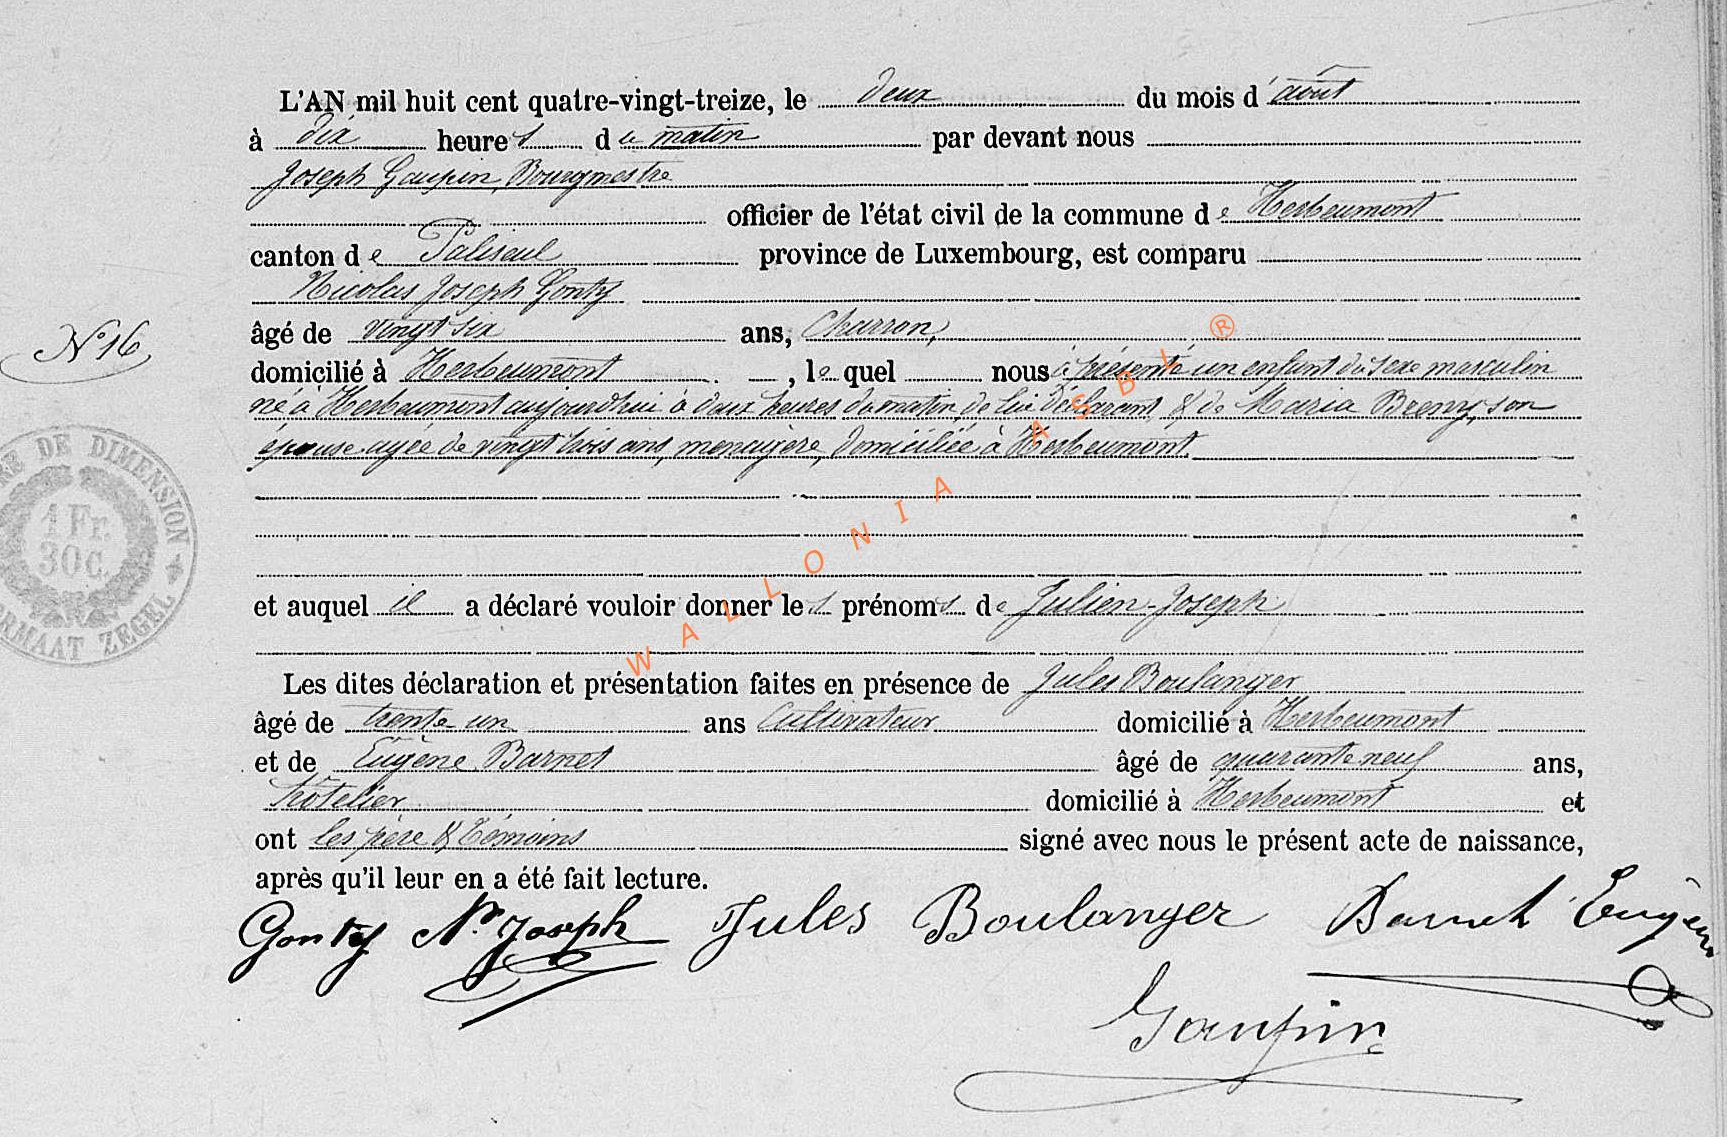 L'AN mil huit cent quatre-vingt-treize, le deux du mois d'août
à dix heures du matin par devant nous
Joseph Gaupin, Bourgmestre
officier de l'état civil de la commune de Herbeumont
canton de Paliseul province de Luxembourg, est comparu
Nicolas Joseph Gonty
N° 16
âgé de vingt six ans, Charron,
domicilié à Herbeumont, lequel nous a présenté un enfant du sexe masculin
né à Herbeumont aujourd'hui à deux heures du matin, de lui déclarant, & de Maria, son
épouse agée de vingt trois ans, menagère, domiciliée à Herbeumont.
TIMBRE DE DIMENSION
1 Fr.
30 C.
FORMAAT ZEGEL
et auquel il a déclaré vouloir donner les prénoms de Julien-Joseph
Les dites déclaration et présentation faites en présence de Jules Boulanger
âgé de trente un ans Cultivateur domicilié à Herbeumont
et de Eugène Barnet âgé de quarante neuf ans,
hôtelier domicilié à Herbeumont et
ont les père & témoins signé avec nous le présent acte de naissance,
après qu'il leur en a été fait lecture.
Gonty N. Joseph Jules Boulanger Barnet Eugène
Gaupin
WALLONIA ASBL ®